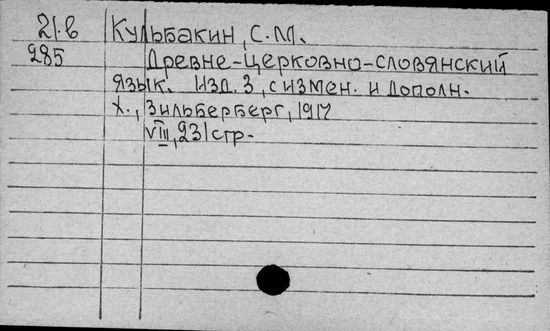 21.в Кульбакин, С.М.
285 Древне-церковно-словянский
язык. Изд. 3, с измен. и дополн.
Х., Зильберберг, 1917
VIII, 231 стр.